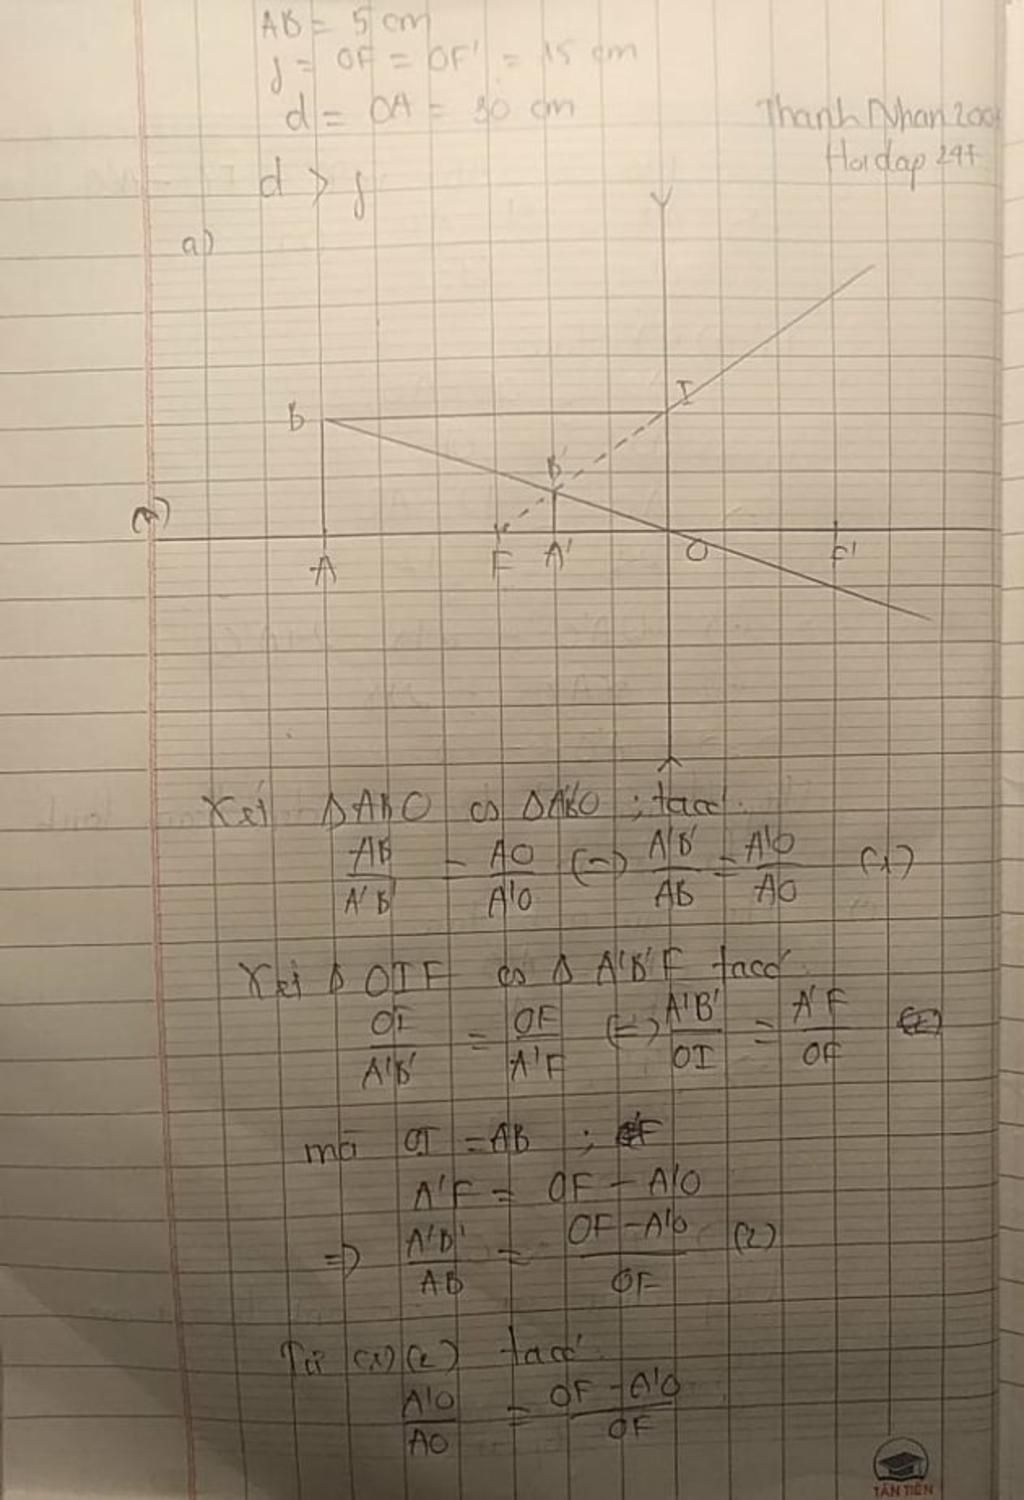 AB = 5 cm
f = OF = OF' = 15 cm
d = OA = 30 cm
Thanh Nhan 200
Hoidap 247
d > f
a)
I
B
B'
A
F
A'
O
F'
Xét ΔABO ∽ ΔA'B'O ; tacó
AB/A'B' = AO/A'O (=) A'B'/AB = A'O/AO (1)
Xét Δ OIF ∽ Δ A'B'F tacó
OI/A'B' = OF/A'F (=) A'B'/OI = A'F/OF
mà OI = AB ;
A'F = OF - A'O
=> A'B'/AB = OF - A'O/OF (2)
Từ (1)(2) tacó
A'O/AO = OF - A'O/OF
TÂN TIẾN